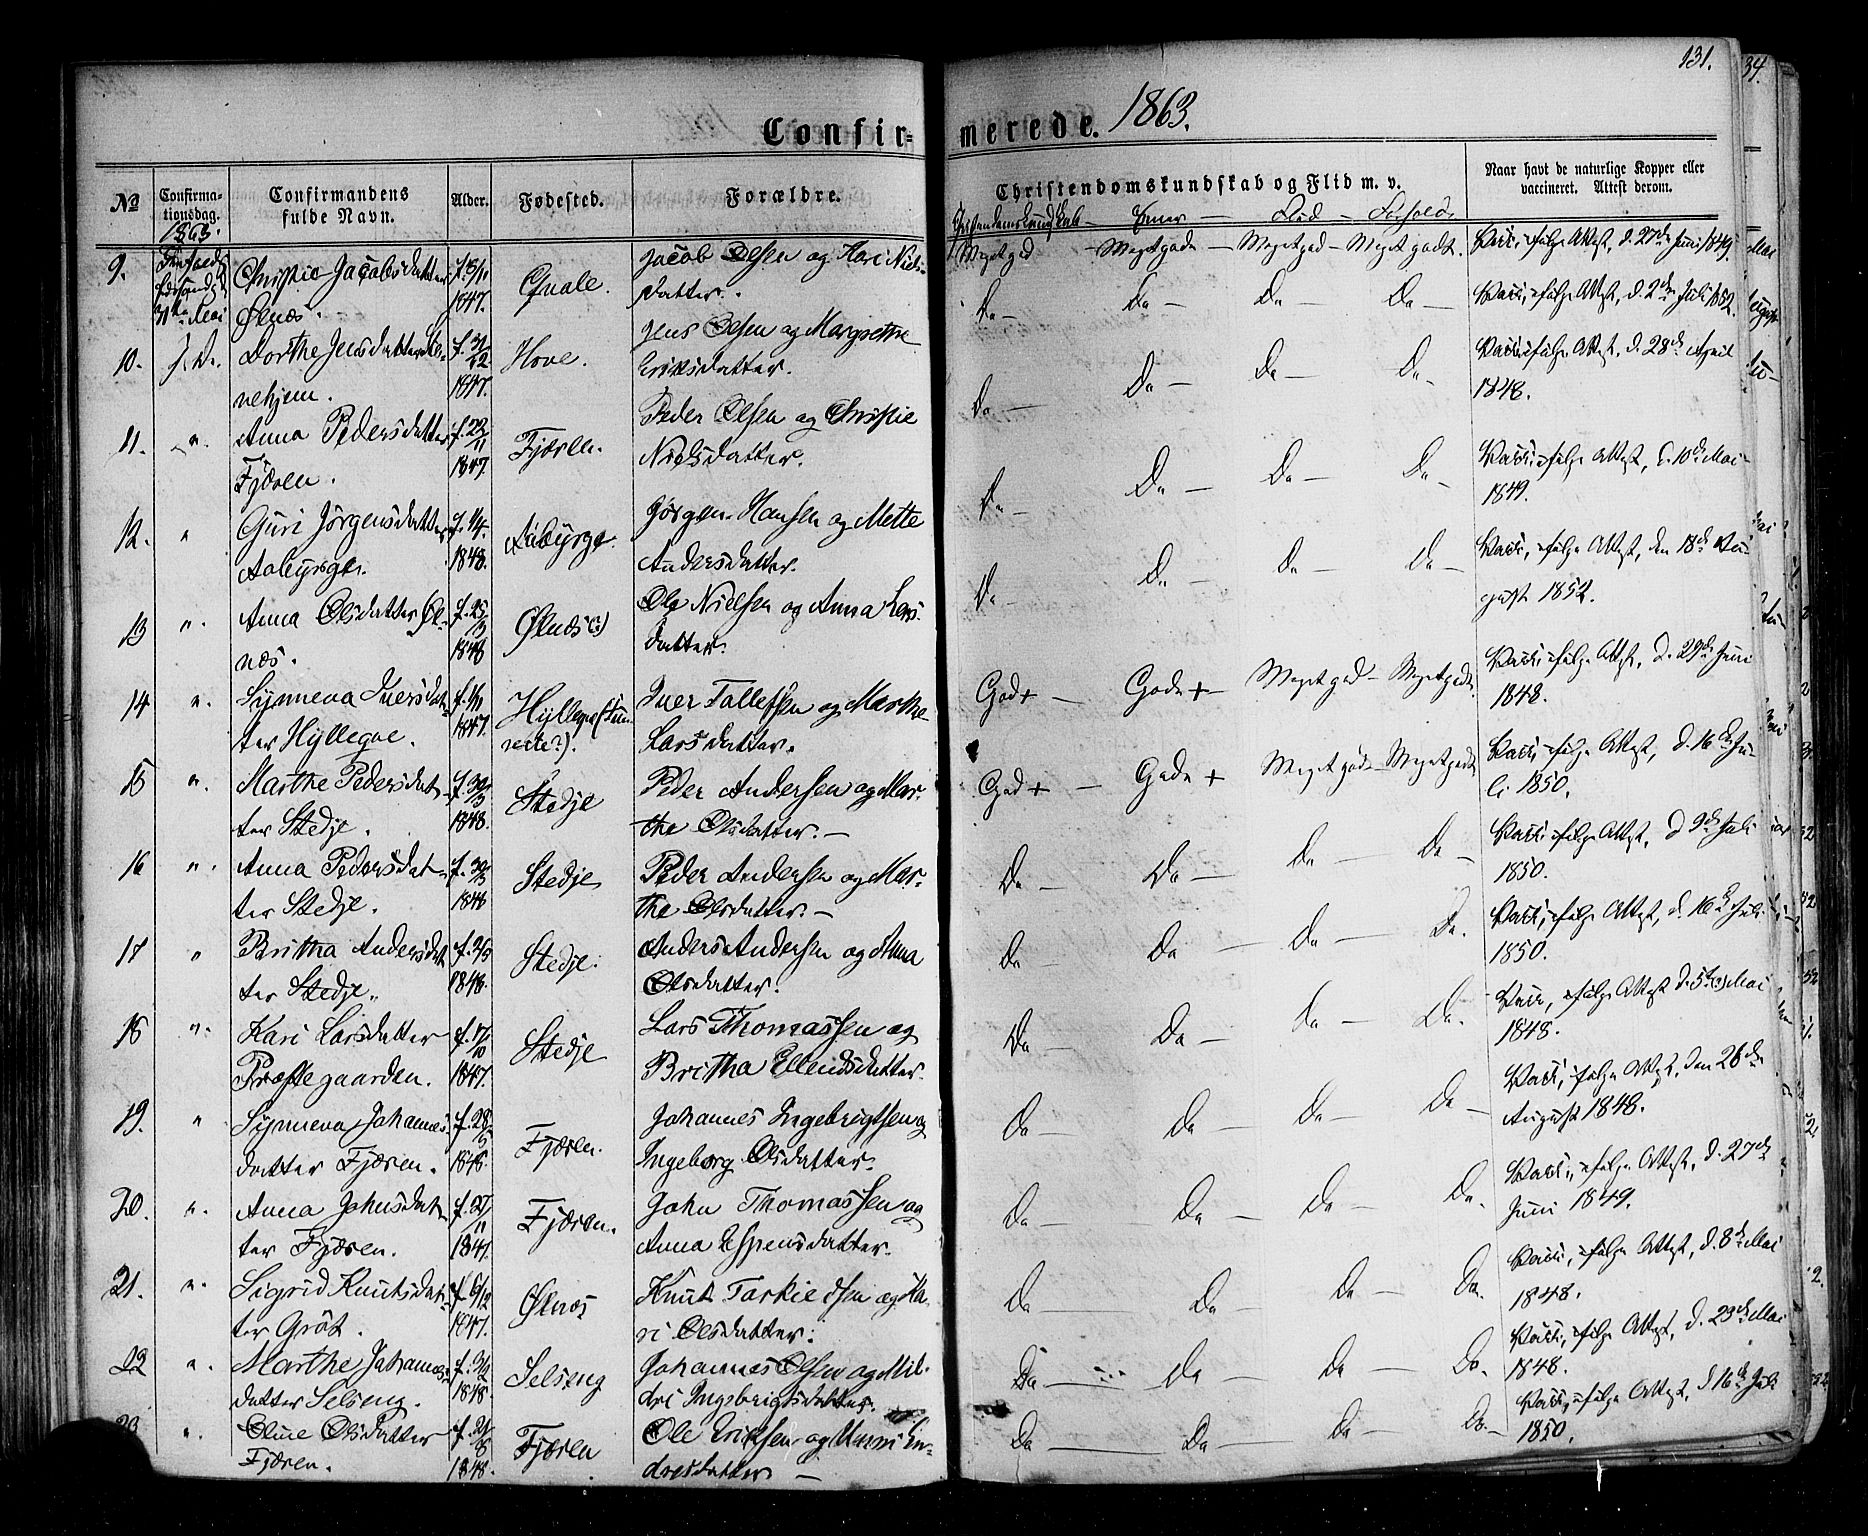 131.
Confir-
merede. 1863.
№
Confirma-
tionsdag.
1863.
Confirmandens
fulde Navn.
Alder.
Fødested.
Forældre.
Christendomskundskab og Flid m. v.
Naar havt de naturlige Kopper eller
vaccineret. Attest derom.
Flid
9.
31te Mai
Christie Jacobsdatter
Ølnæs.
1847.
Quale.
Jacob Olsen og Kari Niels-
datter.
Meget god
Meget gode
Meget god
Meget godt.
Vacc. ifølge Attest, d. 27de Juni 1849.
10.
Dorthe Jensdatter
nehjem.
f. 31/12
1847.
Hove.
Jens Olsen og Margrethe
Eriksdatter.
Do
Do
Do
Do
Vacc. ifølge Attest, d. 2den Juli 1852.
11.
"
Anna Pedersdatter
Fjæren.
f. 22/11
1847.
Fjæren.
Peder Olsen og Christie
Nielsdatter.
Do
Do
Do
Do
Vacc. ifølge Attest, d. 28de April
1848.
12.
"
Guri Jørgensdatter
Aabyrge.
f. 1/4
1848.
Aabyrge.
Jørgen Hansen og Mette
Andersdatter.
Do
Do
Do
Do
Vacc. ifølge Attest, d. 10de Mai
1849.
13
"
Anna Olsdatter Øl-
næs.
f. 25/3
1848
Ølnæs(?)
Ole Nielsen og Anna Lars-
datter.
Do
Do
Do
Do
Vacc. ifølge Attest, den 18de Au-
gust 1852.
14
"
Synneva Iversdat-
ter Hyllegae.
1847.
Hyllegae
Iver Tollefsen og Marthe
Larsdatter.
God +
Gode +
Meget god
Meget godt
Vacc. ifølge Attest, d. 29de Juni
1848.
15
"
Marthe Pedersdat-
ter Stedje.
f. 30/3
1848.
Stedje
Peder Andersen og Mar-
the Olsdatter.
God +
Gode +
Meget god
Meget godt
Vacc. ifølge Attest, d. 16de Ju-
li 1850.
16
"
Anna Pedersdat-
ter Stedje.
f. 30/3
1848
Stedje
Peder Andersen og Mar-
the Olsdatter.
Do
Do
Do
Do
Vacc. ifølge Attest, d 9de Juli
1850.
17
"
Britha Andersdat-
ter Stedje.
1848.
Stedje.
Anders Andersen og Anna
Olsdatter.
Do
Do
Do
Do.
Vacc. ifølge Attest, d. 16de Juli
1850.
18
"
Kari Larsdatter
Præstegaarden.
f. 17/10
1847.
Stedje
Lars Thomassen og
Britha Ellendsdatter.
Do
Do
Do
Do.
Vacc. ifølge Attest d. 5te(?) Mai
1848.
19.
"
Synneva Johannes-
datter Fjæren.
f. 28/5
1848.
Fjæren.
Johannes Ingebrigtsen og
Ingeborg Olsdatter.
Do
Do
Do
Do
Vacc. ifølge Attest, den 26de
August 1848.
20.
"
Anna Johnsdat-
ter Fjæren.
f. 27/11
1847.
Fjæren.
John Thomassen og
Anna Espensdatter.
Do
Do
Do
Do.
Vacc. ifølge Attest, d. 27de
Juni 1849.
21.
"
Sigrid Knutsdat-
ter Grøt.
f. 6/12
1847.
Ølnæs
Knut Torkildsen og Ka-
ri Olsdatter.
Do
Do
Do
Do.
Vacc. ifølge Attest, d. 8de Mai
1848.
22
"
Marthe Johannes-
datter Selseng.
1848.
Selseng
Johannes Olsen og Mil-
dri Ingebrigtsdatter.
Do
Do
Do
Do.
Vacc. ifølge Attest, d. 23de Mai
1848.
23
"
Oline Olsdatter
Fjæren.
1848.
Fjæren
Ole Eriksen og Marri En-
dresdatter
Do
Do
Do
Do.
Vacc. ifølge Attest, d 16de Juli
1850.